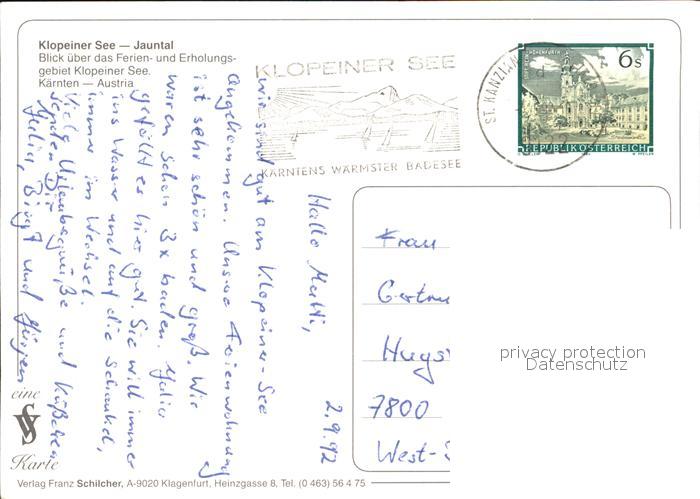 Klopeiner See — Jauntal
Blick über das Ferien- und Erholungs-
gebiet Klopeiner See.
Kärnten — Austria
KLOPEINER SEE
KÄRNTENS WÄRMSTER BADESEE
ST. KANZIAN
6s
REPUBLIK ÖSTERREICH
2.9.92
Hallo Mutti,
wir sind gut am Klopeiner-See
angekommen. Unsere Ferienwohnung
ist sehr schön und groß. Wir
waren schon 3x baden. Julia
gefällt es hier gut. Sie will immer
ins Wasser und auf die Schaukel,
immer im Wechsel.
Viele Urlaubsgrüße und Küßchen
senden Dir
Julia, Birgit und Jürgen
Frau
Gertru
Hugs
7800
West-
privacy protection
Datenschutz
eine
Karte
Verlag Franz Schilcher, A-9020 Klagenfurt, Heinzgasse 8, Tel. (0 463) 56 4 75